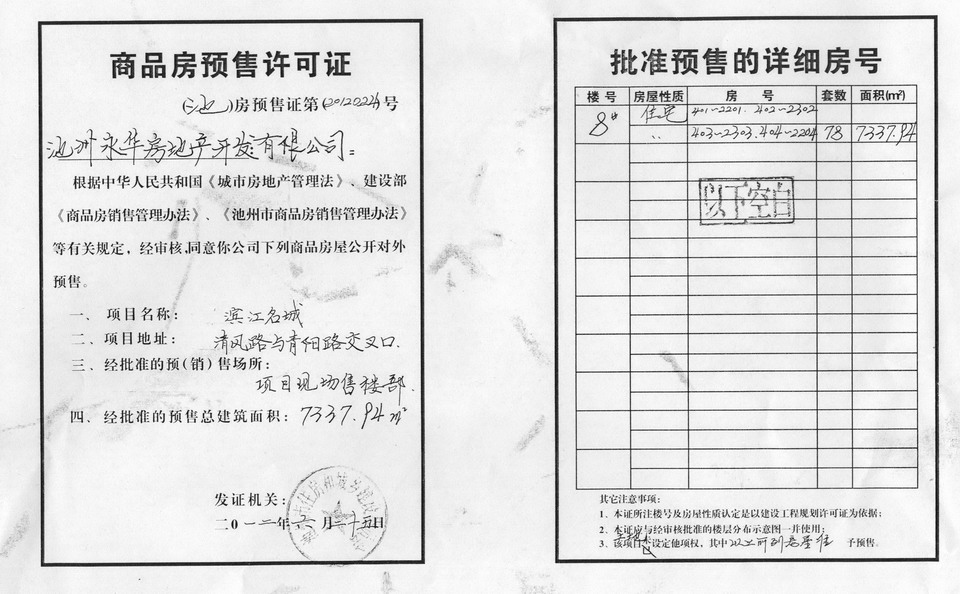 商品房预售许可证
(池)房预售证第(2012022)号
池州永华房地产开发有限公司：
根据中华人民共和国《城市房地产管理法》、建设部
《商品房销售管理办法》、《池州市商品房销售管理办法》
等有关规定，经审核，同意你公司下列商品房屋公开对外
预售。
一、项目名称： 滨江名城
二、项目地址： 清风路与青阳路交叉口.
三、经批准的预(销)售场所：
项目现场售楼部.
四、经批准的预售总建筑面积：7337.94㎡
发证机关：
二〇一二年六月二十五日
批准预售的详细房号
楼号 房屋性质 房号 套数 面积(㎡)
8# 住宅 401-2201. 402-2302
〃 403-2303.404-2204 78 7337.94
以下空白
其它注意事项：
1、本证所注楼号及房屋性质认定是以建设工程规划许可证为依据；
2、本证应与经审核批准的楼层分布示意图一并使用；
3、该项目 设定他项权，其中以上所列房屋准 予预售。